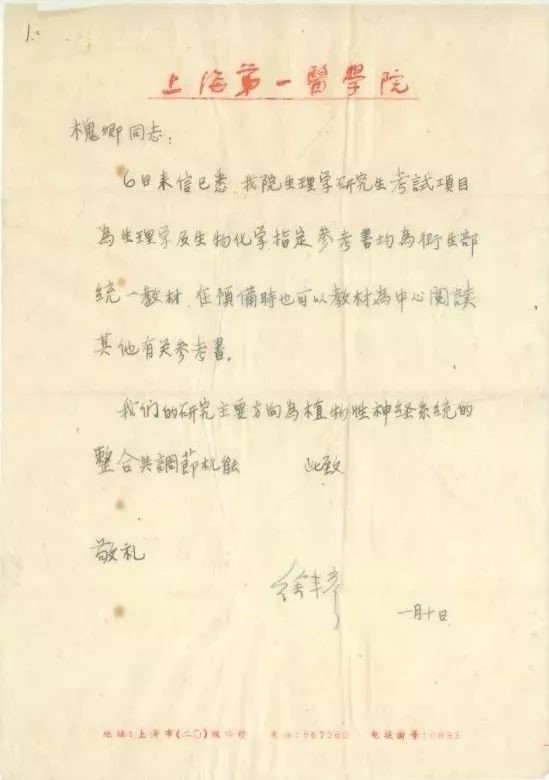 1.
上海第一醫學院
槐卿同志：
6日来信已悉．我院生理学研究生考試項目
為生理学及生物化学．指定参考書均為衛生部
統一教材．在預備時也可以教材為中心閲讀
其他有关参考書。
我们的研究主要方向為植物性神经系統的
整合共調節机能 此致
敬礼
徐丰彦
一月十日
地址：上海市(二〇) 電話：567260 电报掛号：0833